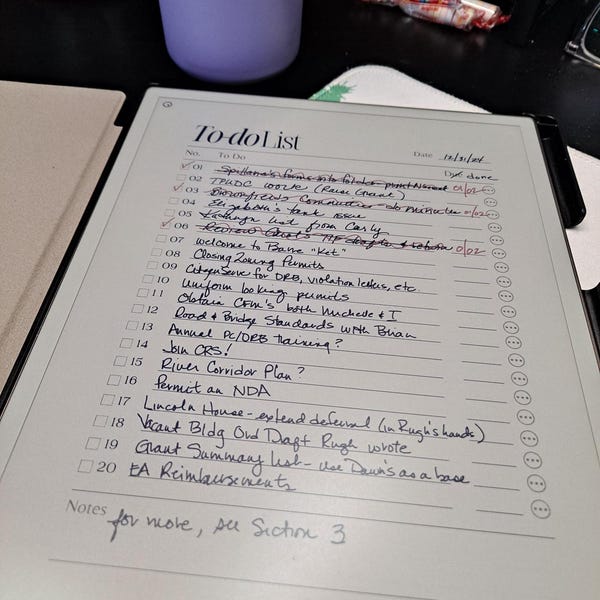 To-do List
Date 12/31/24
No. To Do done
01 into folder 01/02
02 work (Raise Grant)
03 Brownfields Committee - do minutes 01/02
04 Elizabeth's tank issue
05 list from Carly
06 Review & return 01/02
07 Welcome to Barre "Ket"
08 Closing Zoning Permits
09 for DRB, violation letters, etc.
10 Uniform looking permits
11 Obtain CFM's both Michelle & I
12 Road & Bridge Standards with Brian
13 Annual PC/DRB training?
14 Join CRS!
15 River Corridor Plan?
16 Permit an NDA
17 Lincoln House - extend deferral (in Rugh's hands)
18 Vacant Bldg Ord Daft Rugh wrote
19 Grant Summary List - use Dawn's as a base
20 EA Reimbursements
Notes for more, see Section 3